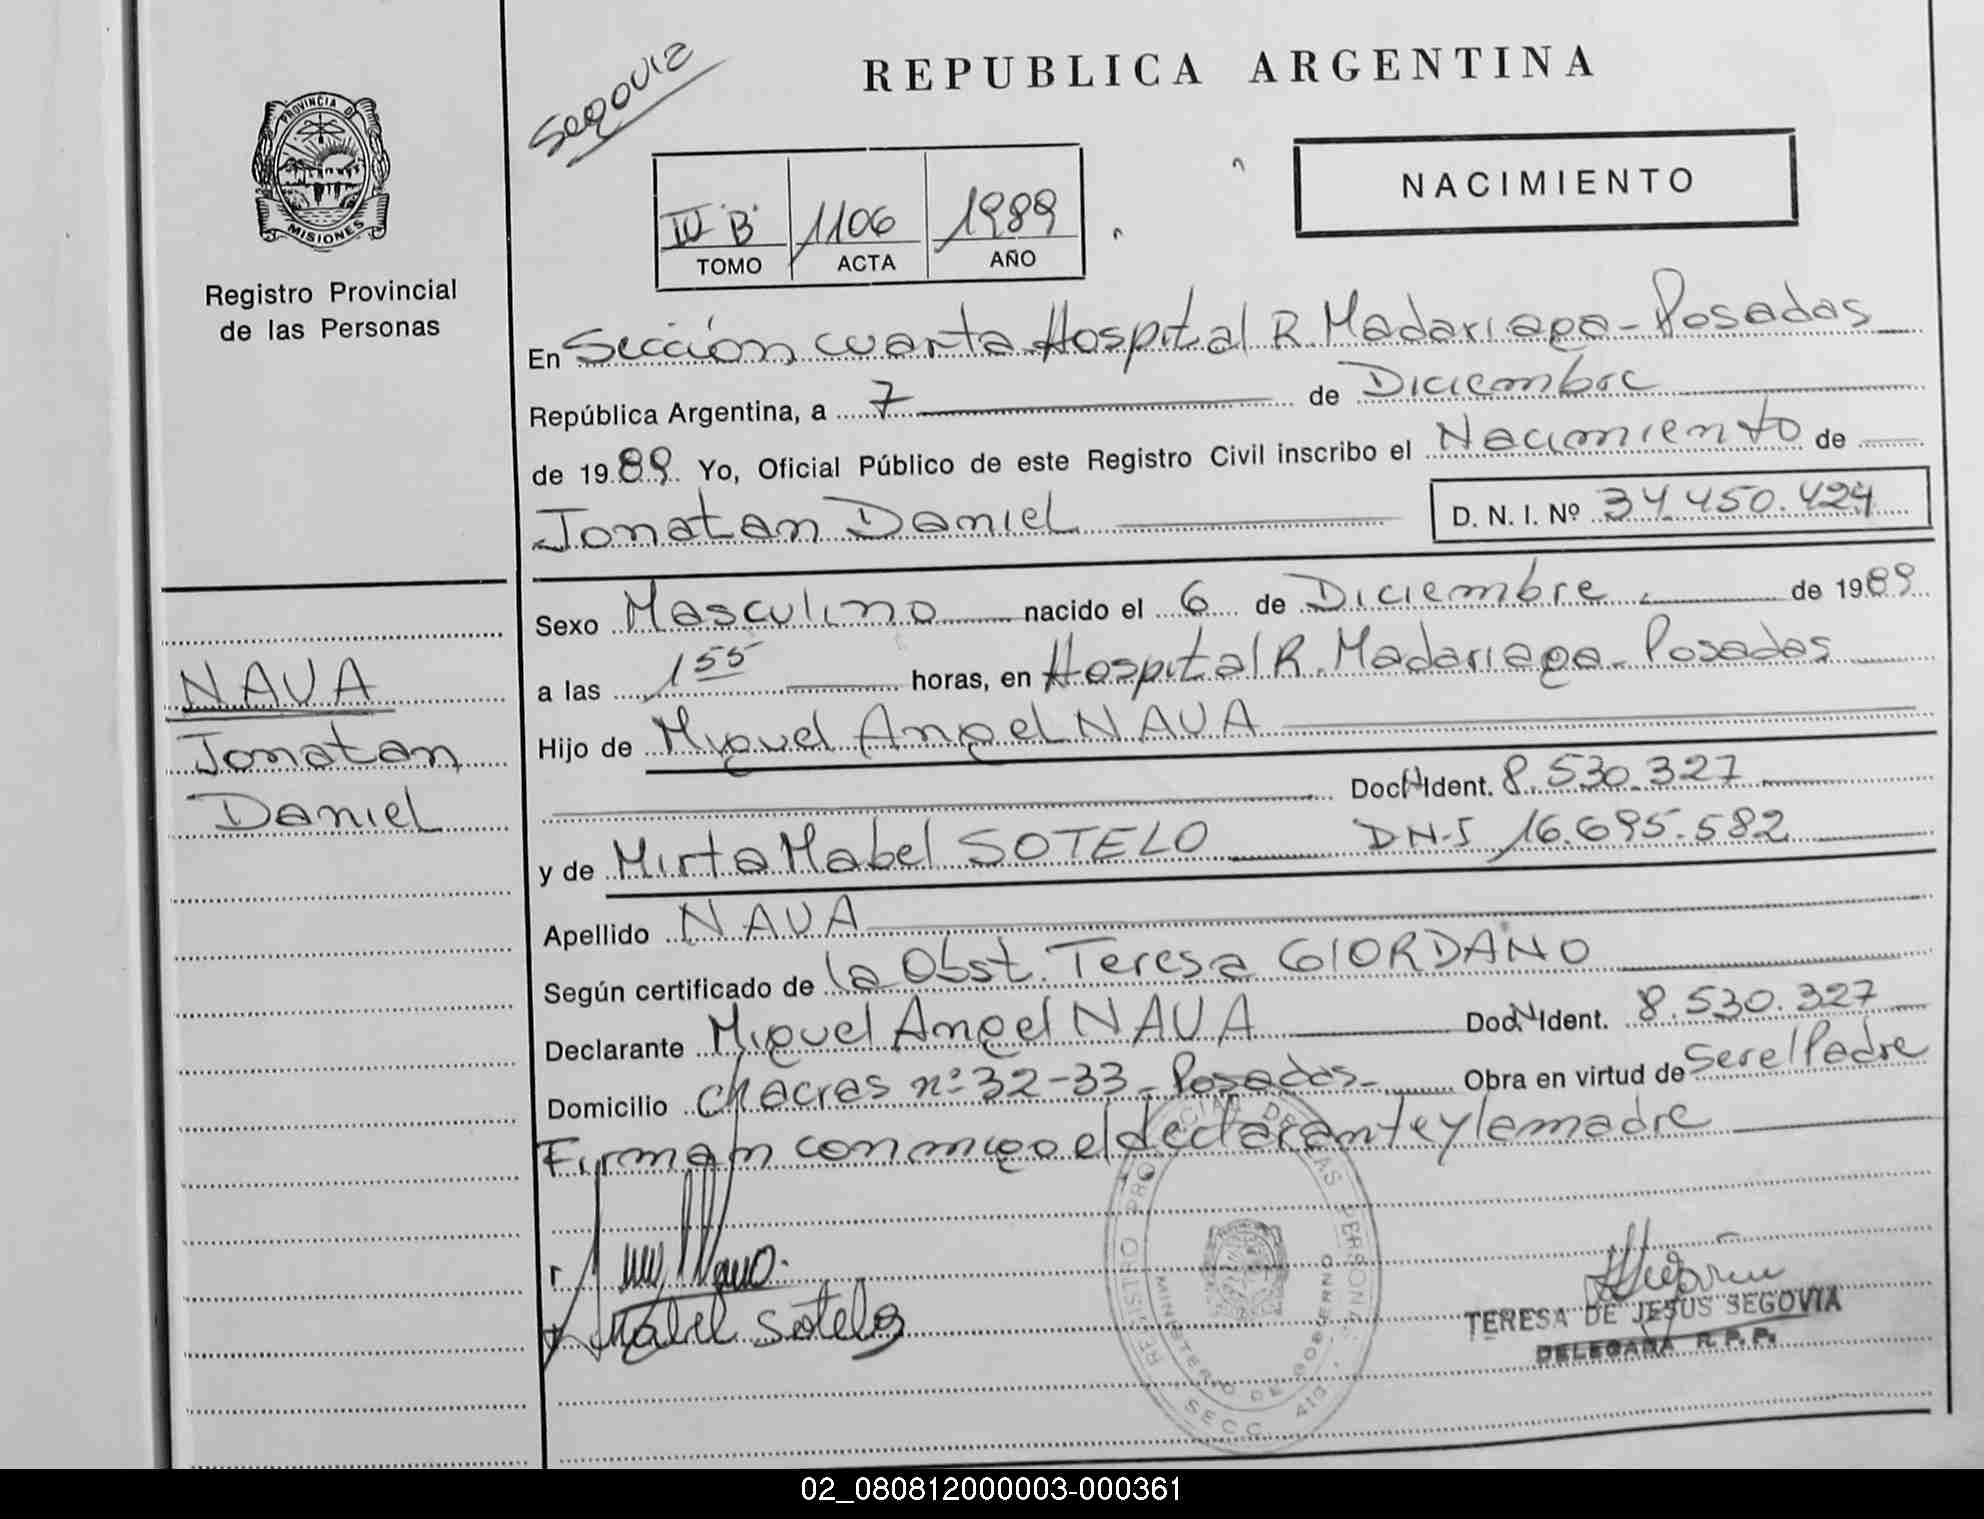 Segovia
REPUBLICA ARGENTINA
PROVINCIA DE
MISIONES
Registro Provincial
de las Personas
IV "B" 1106 1989
TOMO ACTA AÑO
NACIMIENTO
En Sección cuarta Hospital R. Madariaga - Posadas
República Argentina, a 7 de Diciembre
de 1989. Yo, Oficial Público de este Registro Civil inscribo el Nacimiento de
Jonatan Daniel D. N. I. Nº 34.450.424
Sexo Masculino nacido el 6 de Diciembre de 1989
a las 1 55 horas, en Hospital R. Madariaga - Posadas
Hijo de Miguel Angel NAVA
Doc. Ident. 8.530.327
y de Mirta Mabel SOTELO DNI 16.695.582
Apellido NAVA
Según certificado de la Obst. Teresa GIORDANO
Declarante Miguel Angel NAVA Doc. Ident. 8.530.327
Domicilio Chacras nº 32-33 - Posadas - Obra en virtud de Ser el Padre
Firman conmigo el declarante y la madre
NAVA
Jonatan
Daniel
Mabel Sotelo
REGISTRO PROVINCIAL DE LAS PERSONAS
MINISTERIO DE GOBIERNO
SECC. 4ta.
TERESA DE JESUS SEGOVIA
DELEGADA R. P. P.
02_080812000003-000361